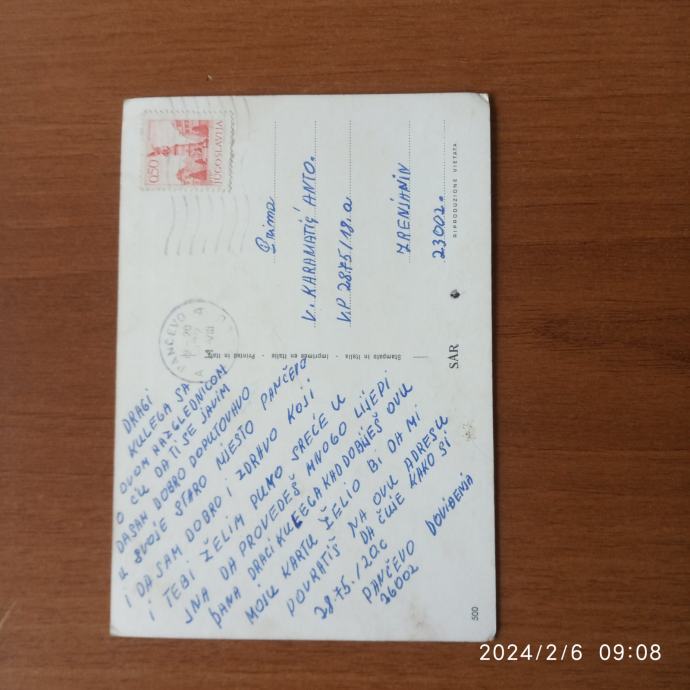 0,50
JUGOSLAVIJA
PANČEVO
20
A
A
VIII
Prima
V. KARAMATIĆ ANTO.
V.P 2875/18.a
ZRENJANIN
23002.
RIPRODUZIONE VIETATA
Stampato in Italia - Imprimée en Italie - Printed in Italy
SAR
500
DRAGI
KULEGA SA
OVOM RAZGLEDNICOM
O ĆU DA TI SE JAVIM
DA SAM DOBRO DOPUTOVAVO
U SVOJE STARO MJESTO PANČEVO
I DA SAM DOBRO I ZDRAVO KOJI
I TEBI ŽELIM PUNO SREĆE U
JNA DA PROVEDEŠ MNOGO LIJEPI
DANA DRAGI KULEGA KAD DOBIJEŠ OVU
MOJU KARTU ŽELIO BI DA MI
POVRATIŠ NA OVU ADRESU
2875./20c DA ČUJE KAKO SI
PANČEVO
26002 DOVIĐENJA
2024/2/6 09:08